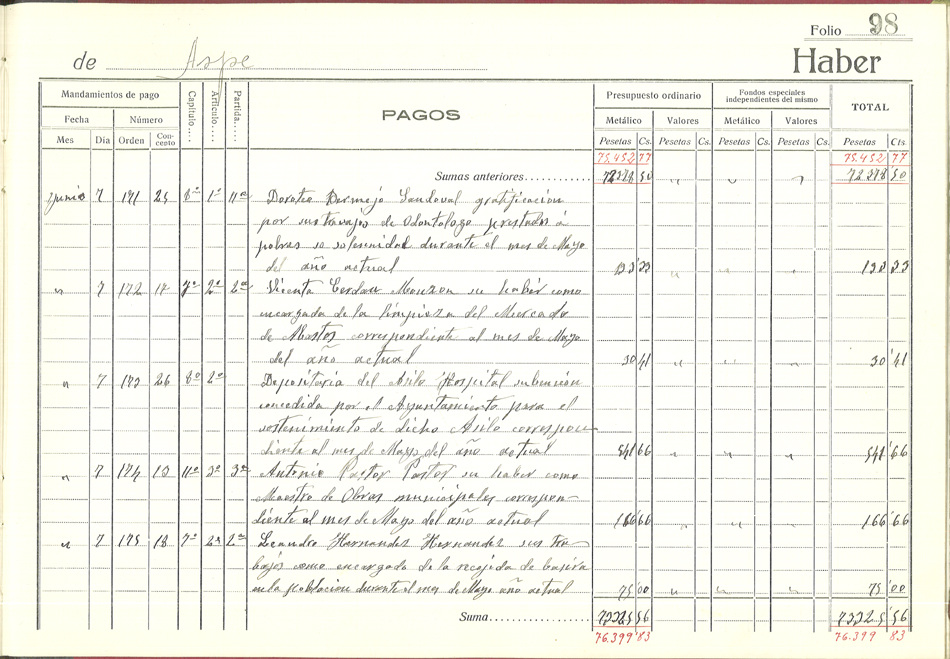 Folio 98
de Aspe Haber
Mandamientos de pago Capítulo.... Artículo.... Partida.... PAGOS Presupuesto ordinario Fondos especiales independientes del mismo TOTAL
Fecha Número Metálico Valores Metálico Valores
Mes Día Orden Concepto Pesetas Cs. Pesetas Cs. Pesetas Cs. Pesetas Cs. Pesetas Cts.
75.452 77 75.452 77
Sumas anteriores............ 72378 50 " " " 72378 50
Junio 7 171 25 8º 1º 11ª Dorotea Bermejo Sandoval gratificacion
por sus trabajos de Odontologo prestados á
pobres so solemnidad durante el mes de Mayo
del año actual 133 33 " " " 133 33
" 7 172 17 7º 2º 2ª Vicenta Cerdan Monzon su haber como
encargada de la limpieza del Mercado
de Abastos correspondiente al mes de Mayo
del año actual 30 41 " " " 30 41
" 7 173 26 8º 2º Depositaria del Asilo Hospital subencion
concedida por el Ayuntamiento para el
sostenimiento de dicho Asilo correspon
diente al mes de Mayo del año actual 541 66 " " " 541 66
" 7 174 13 11º 3º 3ª Antonio Pastor Pastor su haber como
Maestro de Obras municipales correspon-
diente al mes de Mayo del año actual 166 66 " " " 166 66
" 7 175 18 7º 2º 2ª Leandro Hernandez Hernandez sus tra-
bajos como encargado de la recojida de basura
en la poblacion durante el mes de Mayo año actual 75 00 " " " 75 00
Suma.................. 73325 56 73325 56
76.399 83 76.399 83